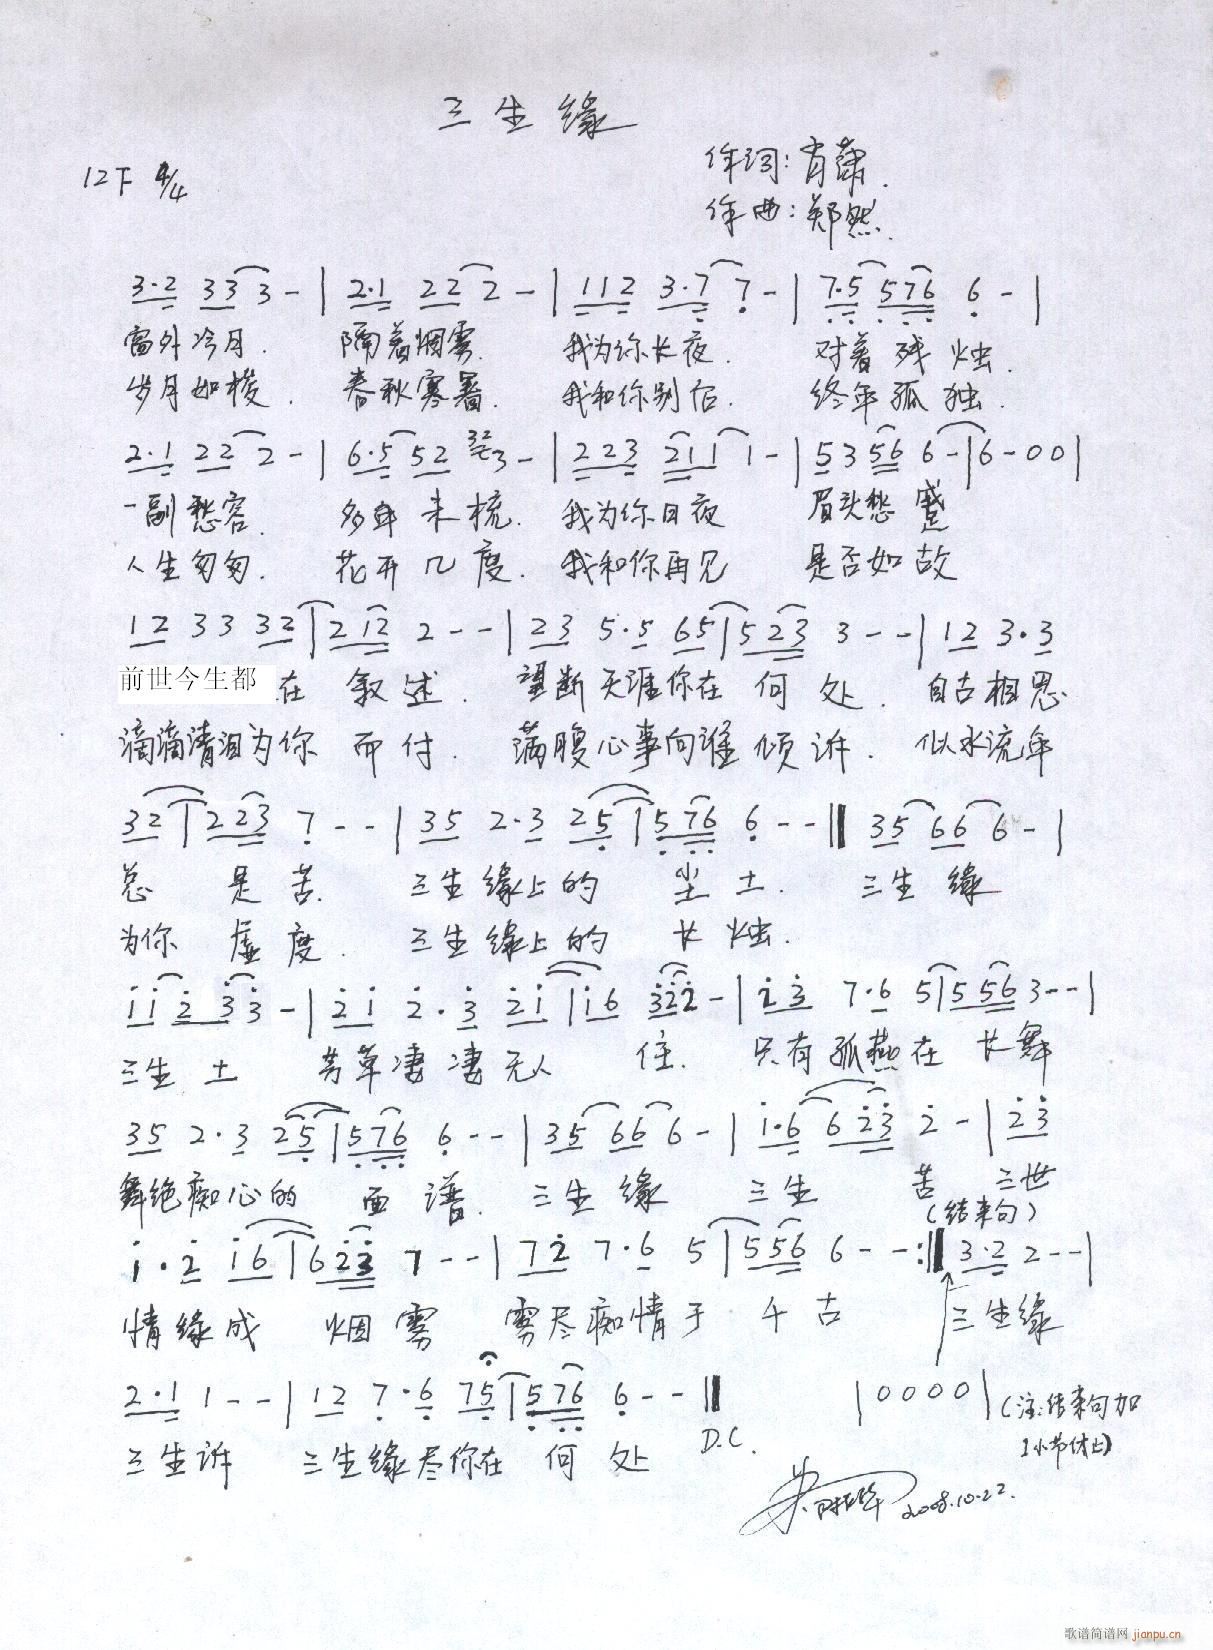 三生缘
作词:肖萧.
作曲:郑然.
1=F 4/4
3·2 33 3 - | 2·1 22 2 - | 112 3·7 7 - | 7·5 576 6 - |
窗外冷月. 隔着烟雾. 我为你长夜. 对着残烛.
岁月如梭. 春秋寒暑. 我和你别后. 终年孤独.
2·1 22 2 - | 6·5 52 32 3 - | 223 211 1 - | 5 3 56 6 - | 6 - 0 0 |
一副愁容. 多年未梳. 我为你日夜 眉头愁蹙
人生匆匆. 花开几度. 我和你再见 是否如故
12 3 3 32 | 212 2 - - | 23 5·5 65 | 523 3 - - | 12 3·3
前世今生都在 叙述. 望断天涯你在 何处. 自古相思
滴滴清泪为你 而付. 满腹心事向谁 倾诉. 似水流年
32 | 223 7 - - | 35 2·3 25 | 576 6 - - || 35 66 6 - |
总 是苦. 三生缘上的 尘土. 三生缘
为你 虚度. 三生缘上的 长烛.
11 2 3 3 - | 21 2·3 21 | 16 322 - | 23 7·6 5 | 556 3 - - |
三生土 芳草凄凄无人 住. 只有孤燕在 长舞
35 2·3 25 | 576 6 - - | 35 66 6 - | 1·6 623 2 - | 23
舞绝痴心的 面谱. 三生缘 三生 苦 三世
(结束句)
1·2 16 | 623 7 - - | 72 7·6 5 | 556 6 - - :|| 3·2 2 - - |
情缘成 烟雾 雾尽痴情于 千古 三生缘
2·1 1 - - | 12 7·6 75 | 576 6 - - || | 0 0 0 0 | (注:结束句加
三生诉 三生缘尽你在 何处 D.C. 1小节休止)
2008.10.22.
歌谱简谱网 jianpu.cn